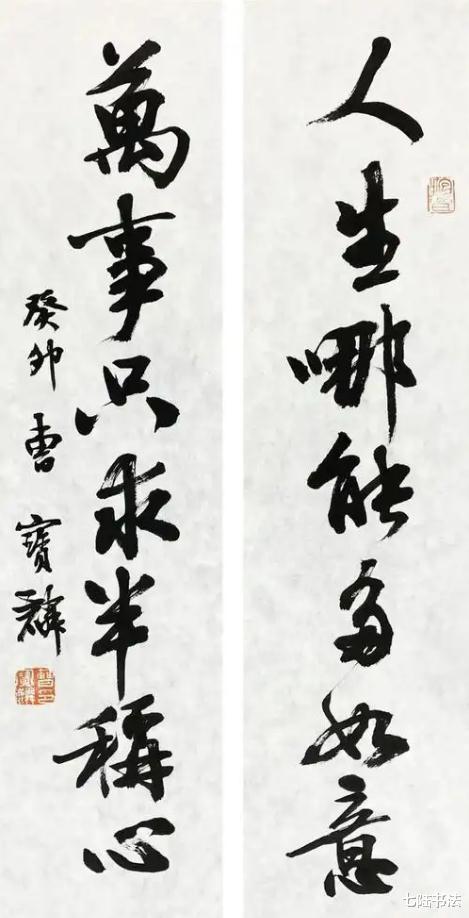 人生哪能多如意
萬事只求半稱心
癸卯曹寶麟
七陆书法